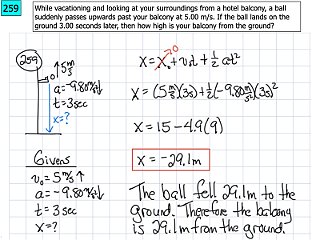 259
While vacationing and looking at your surroundings from a hotel balcony, a ball
suddenly passes upwards past your balcony at 5.00 m/s. If the ball lands on the
ground 3.00 seconds later, then how high is your balcony from the ground?
259
↑5 m/s
a=-9.80 m/s²↓
t=3sec
x=?
x=x₀+v₀t+½at² →0
x=(5 m/s)(3s)+½(-9.80 m/s²)(3s)²
x=15-4.9(9)
x=-29.1m
Givens
v₀=5 m/s↑
a=-9.80 m/s²↓
t=3sec
x=?
The ball fell 29.1m to the
ground. Therefore the balcony
is 29.1m from the ground.